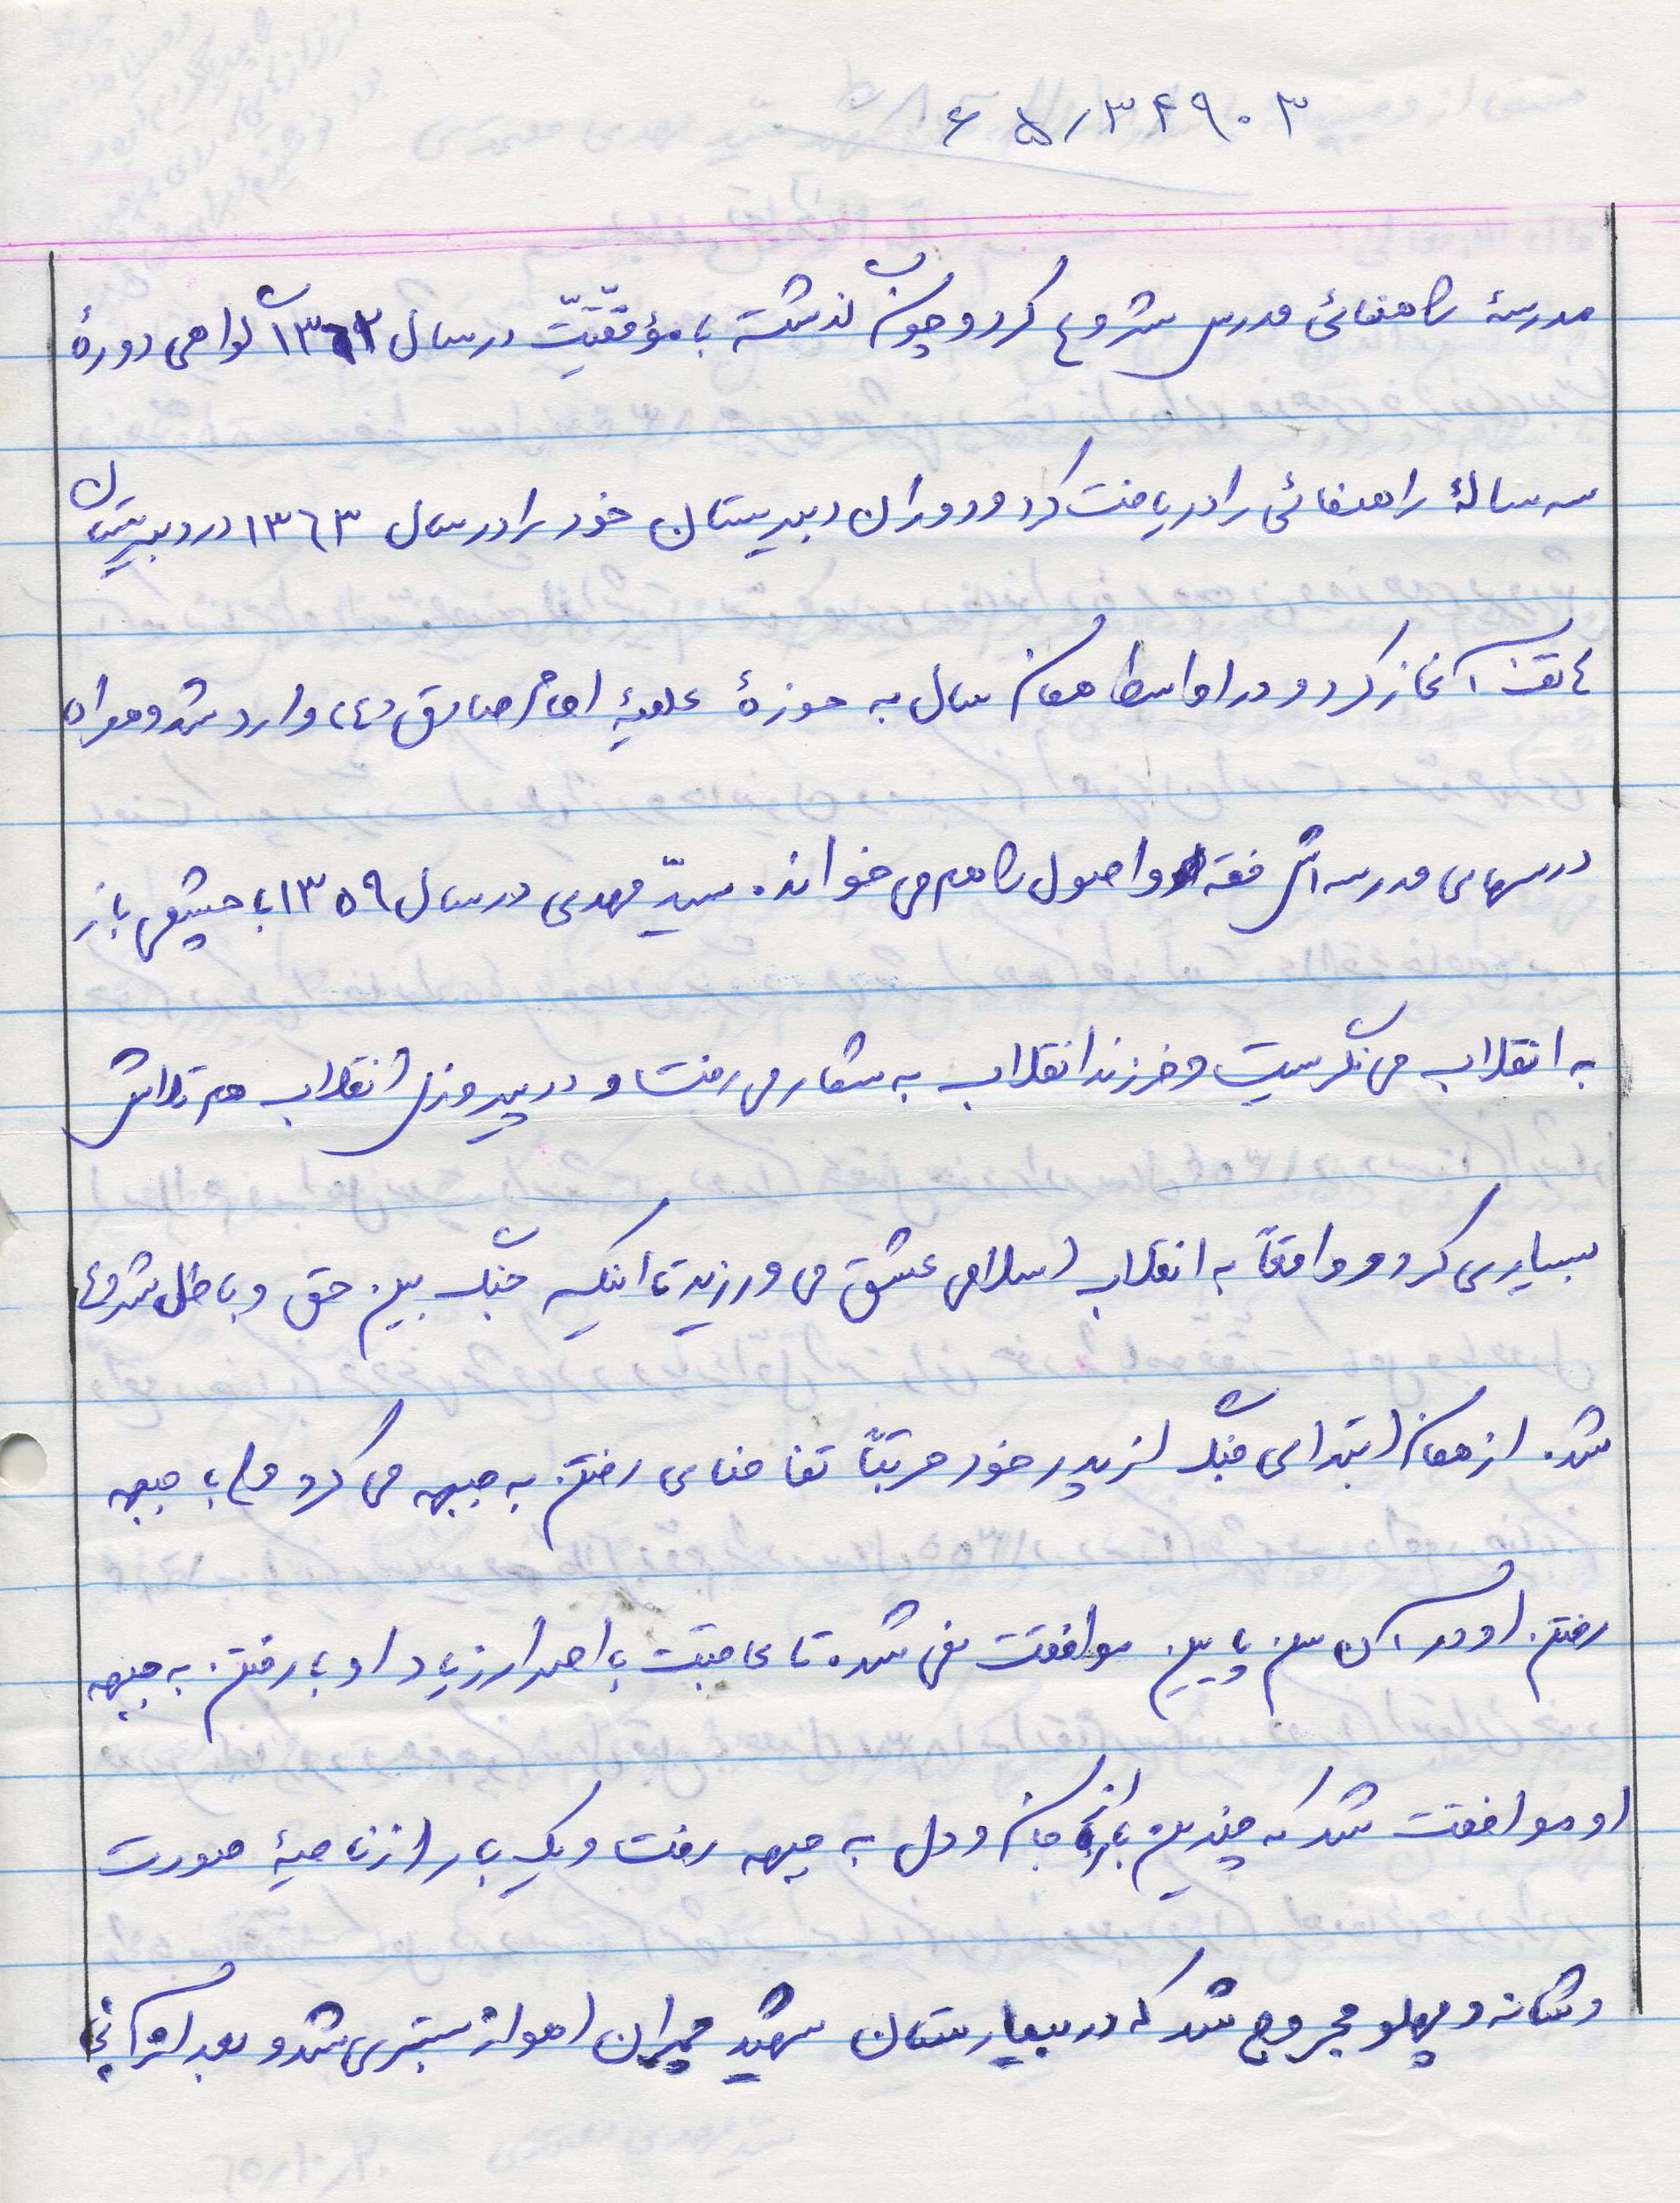 ۶۵/۳۴۹۰۳
مدرسهٔ راهنمائی مدرس شروع کرد و چون گذشته با مؤفّقیّت در سال ۱۳۶۲ گواهی دورهٔ
سه سالهٔ راهنمائی را دریافت کرد و دوران دبیرستان خود را در سال ۱۳۶۳ در دبیرستان
آغاز کرد و در اواسط همان سال به حوزهٔ علمیهٔ امام صادق (ع) وارد شد و همراه
درسهای مدرسه اش فقه و اصول را هم می خواند. سیّد مهدی در سال ۱۳۵۹ با چشمی باز
به انقلاب می نگریست و فرزند انقلاب به شمار می رفت و در پیروزی انقلاب هم تلاش
بسیاری کرد و واقعاً به انقلاب اسلامی عشق می ورزید تا اینکه جنگ بین حق و باطل شروع
شد. از همان ابتدای جنگ از پدر خود مرتباً تقاضای رفتن به جبهه می کرد ولی با جبهه
رفتن او در آن سن پایین موافقت نمی شد. تا عاقبت با اصرار زیاد او با رفتن به جبهه
او موافقت شد که چندین بار از جان و دل به جبهه رفت و یک بار از ناحیهٔ صورت
و شانه و پهلو مجروح شد که در بیمارستان شهید چمران اهواز بستری شد و بعد از آنجا